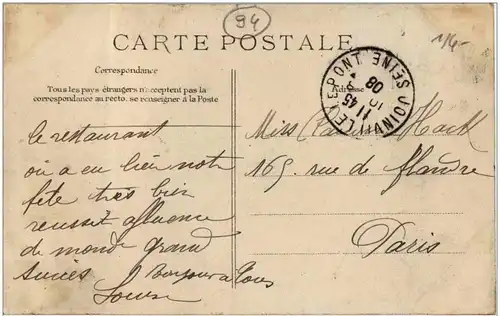 94
1/4-
CARTE POSTALE
Correspondance
Tous les pays étrangers n'acceptent pas la
correspondance au recto. se renseigner à la Poste
Adresse
JOINVILLE LE PONT SEINE
11 45
10
08
le restaurant
ou a eu lieu notre
fête très bien
reussit affluence
de monde grand
succés Bonjour a tous
Louise
Miss Hack
165 rue de flandre
Paris